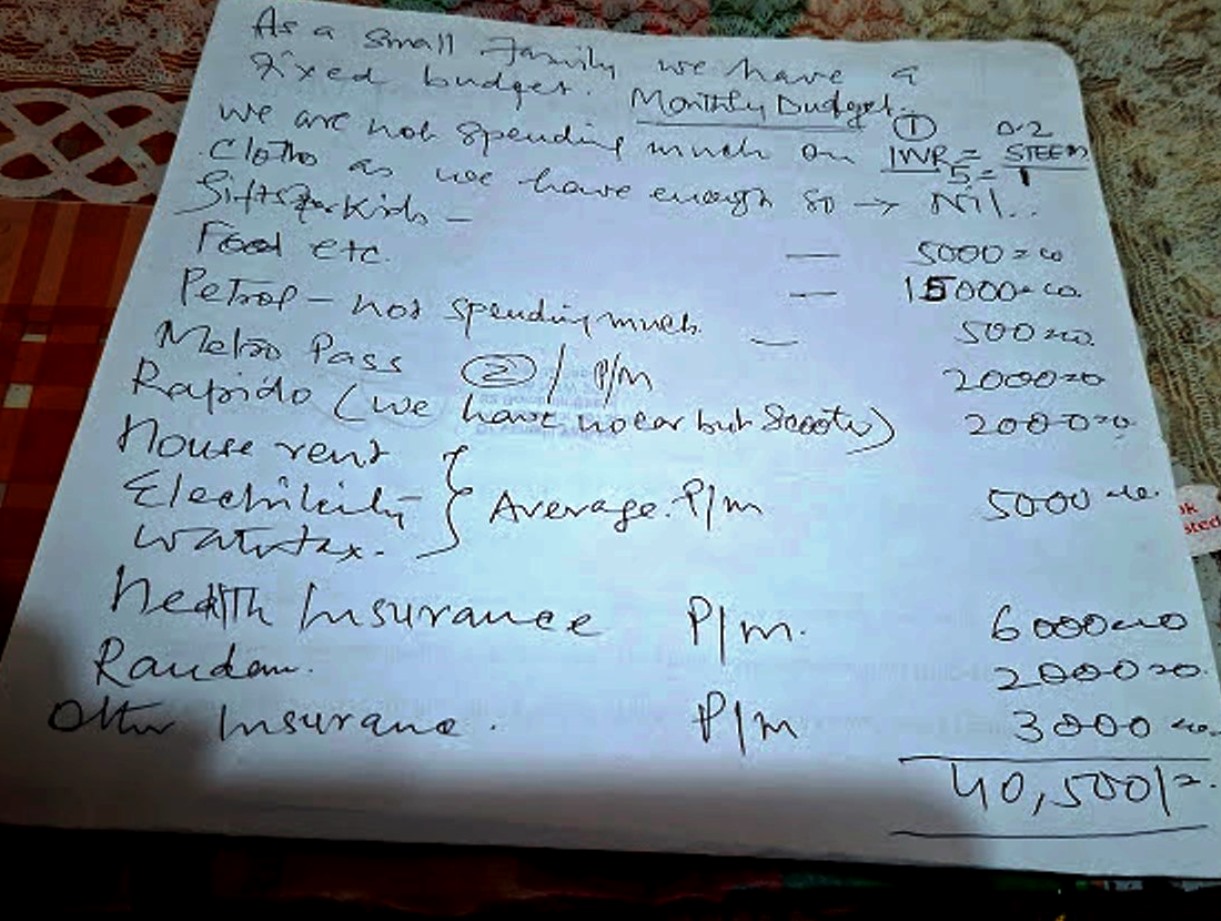 As a small Family we have a
fixed budget. Monthly Budget.
we are not spending much on ① INR = 0.2 STEEM
5 = 1
Cloths as we have enough so → Nil..
Gifts for Kids — 5000=00
Food etc. — 15000=00
Petrol - not spending much — 500=00
Metro Pass ② / P/m 2000=00
Rapido (we have no car but Scooty) 2000=00
House rent
Electrikity } Average. P/m 5000=00
Watertax.
Health Insurance P/m. 6000=00
Random. 2000=00
Other Insurance. P/m 3000=00
40,500/=